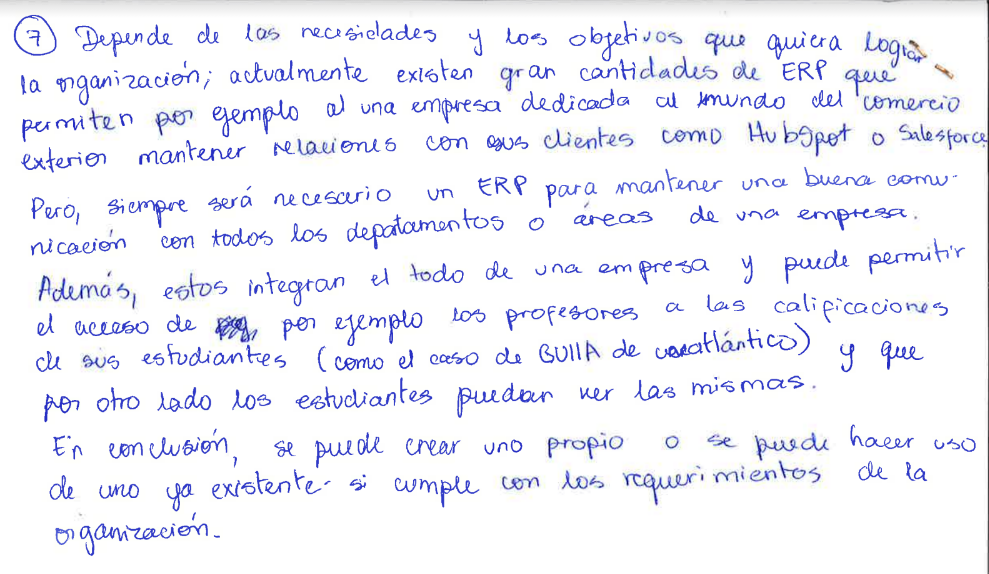 7 Depende de las necesidades y los objetivos que quiera lograr
la organización; actualmente existen gran cantidades de ERP que
permiten por ejemplo al una empresa dedicada al mundo del comercio
exterior mantener relaciones con sus clientes como HubSpot o Salesforce
Pero, siempre será necesario un ERP para mantener una buena comu-
nicación con todos los depatamentos o áreas de una empresa.
Además, estos integran el todo de una empresa y puede permitir
el acceso de por ejemplo los profesores a las calificaciones
de sus estudiantes (como el caso de de) y que
por otro lado los estudiantes puedan ver las mismas.
En conclusión, se puede crear uno propio o se puede hacer uso
de uno ya existente si cumple con los requerimientos de la
organización.